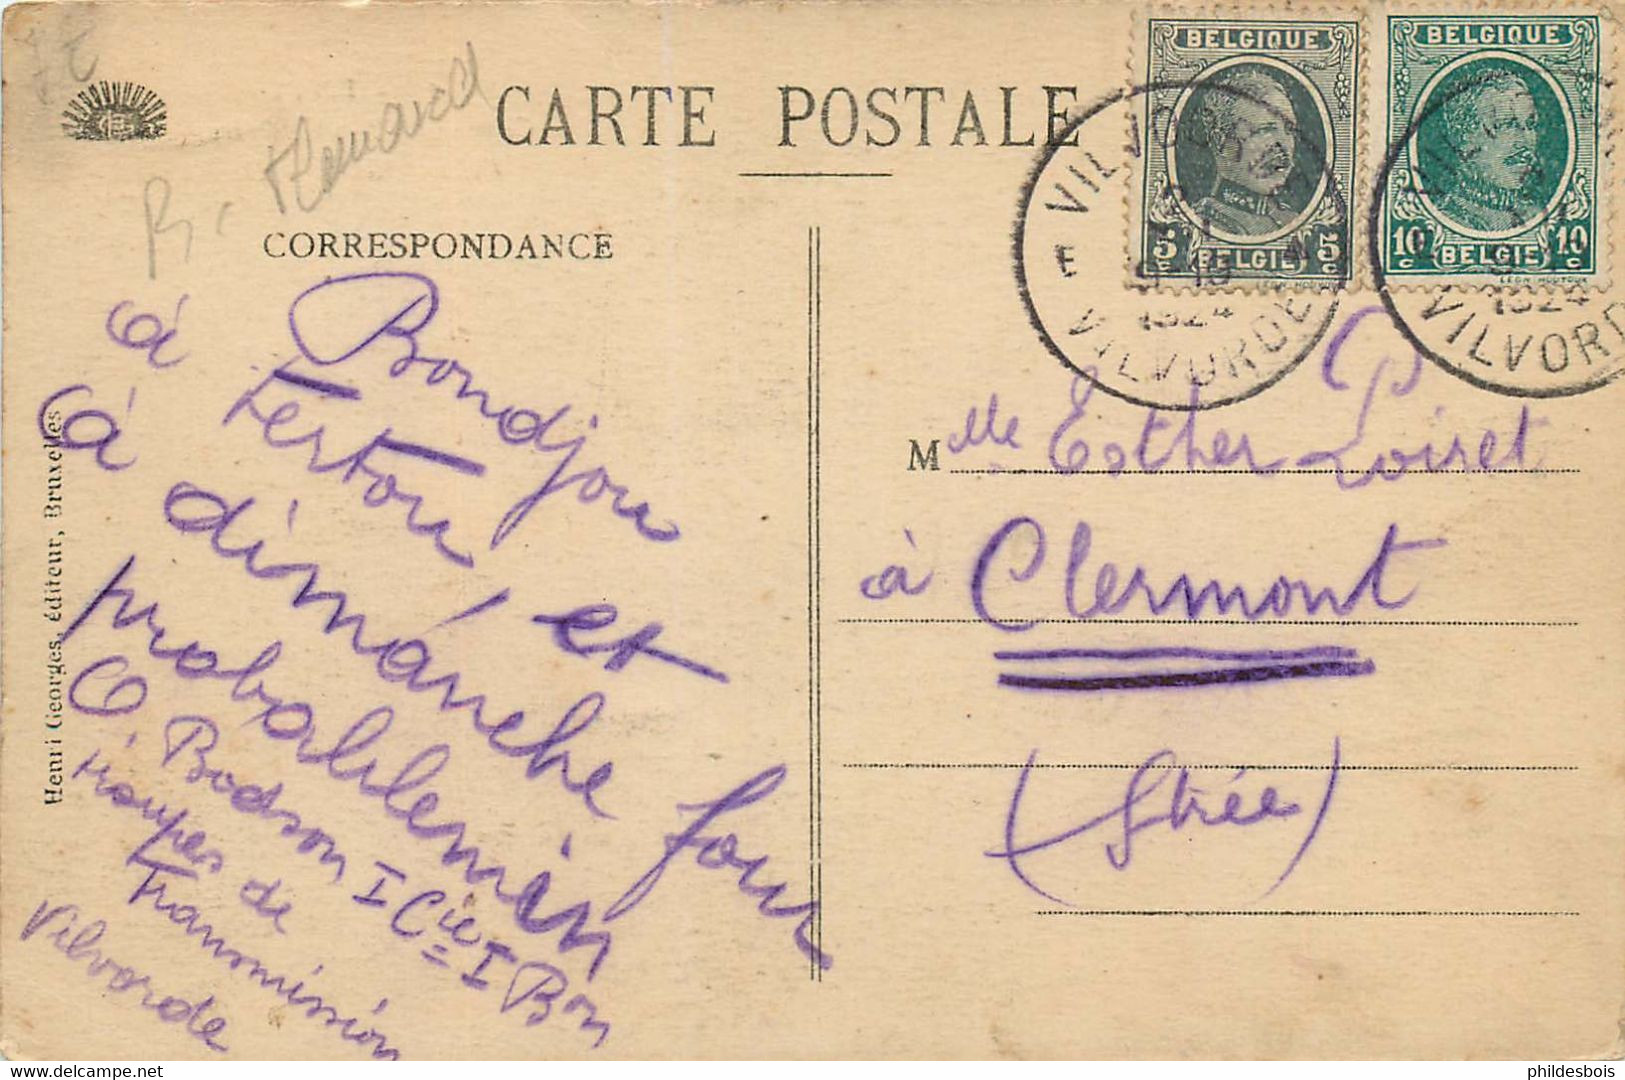 R. Henrard
CARTE POSTALE
CORRESPONDANCE
BELGIQUE
5c 5c
BELGIE
BELGIQUE
10c 10c
BELGIE
VILVOORDE
1924
E VILVORDE
VILVORDE
1924
Bondjou
à Tertou et
à dimanche four
probablemin
O Bodson I Cie I Bon
troupes de
Transmission
Vilvorde
Henri Georges, éditeur, Bruxelles
Mlle Esther Poiret
à Clermont
(Strée)
phildesbois